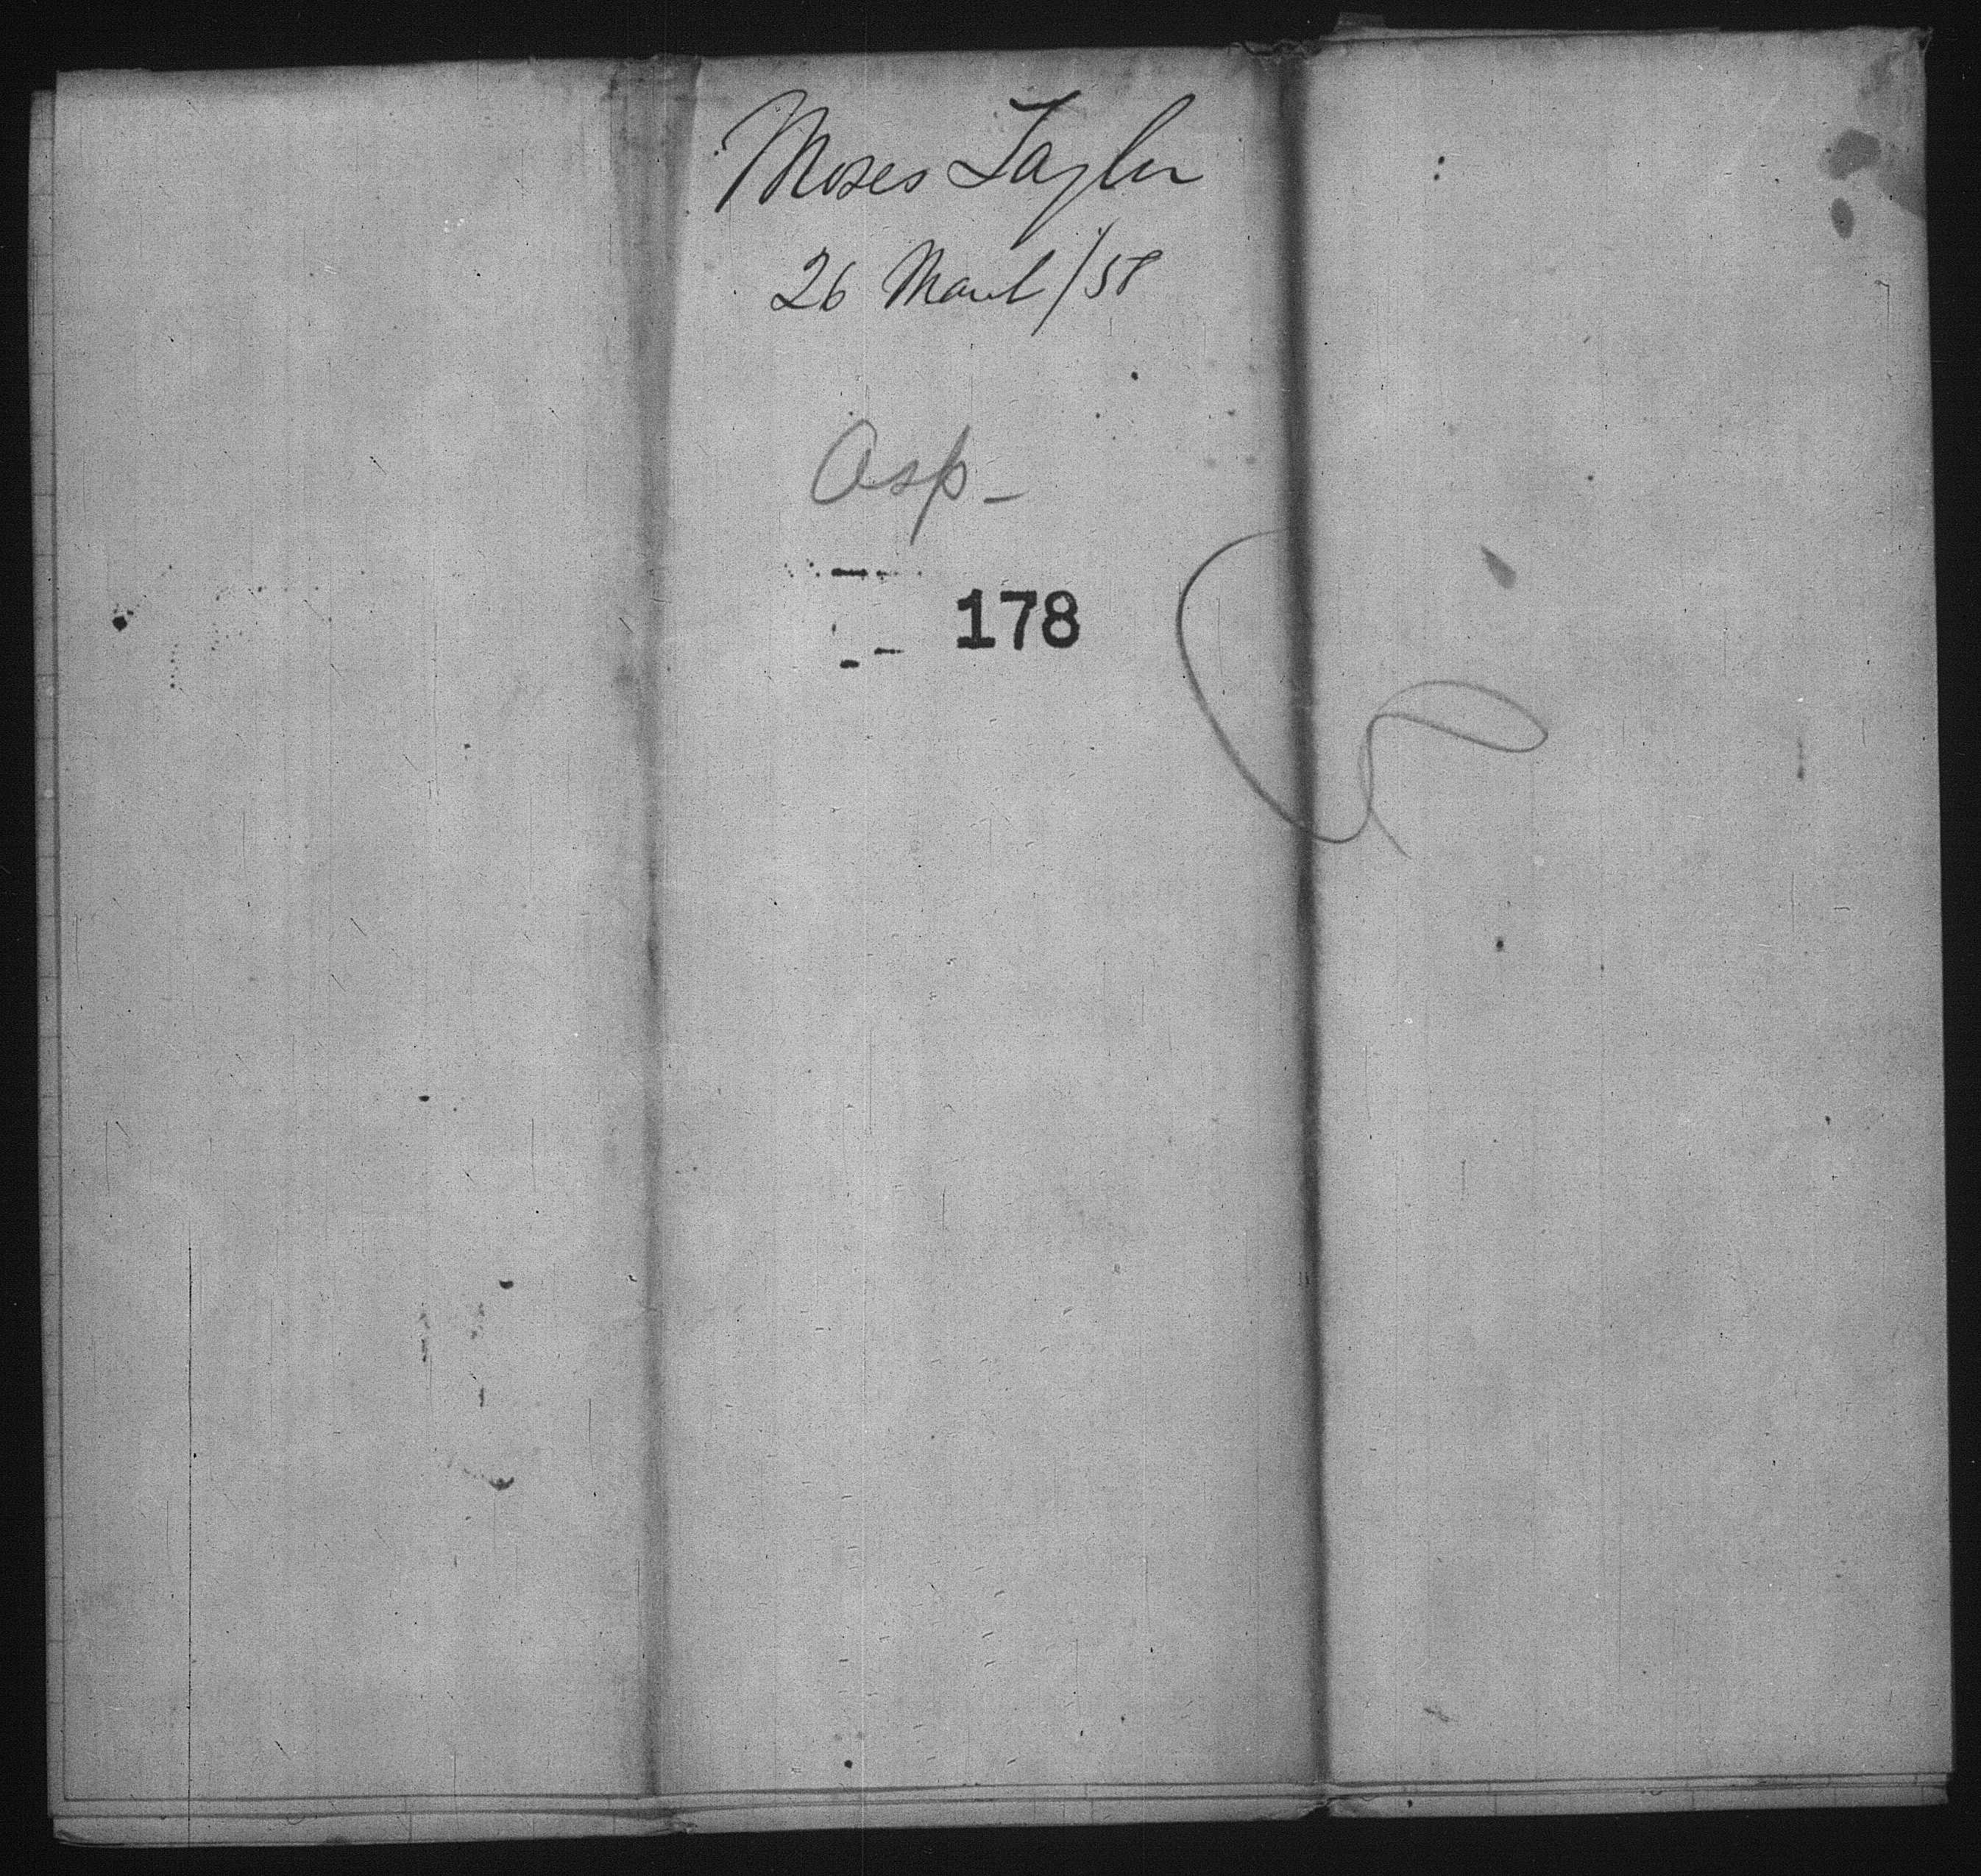 Moses Taylor
26 March/58
Asp-
178